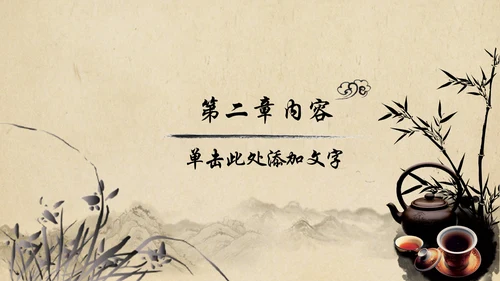 第二章内容
单击此处添加文字